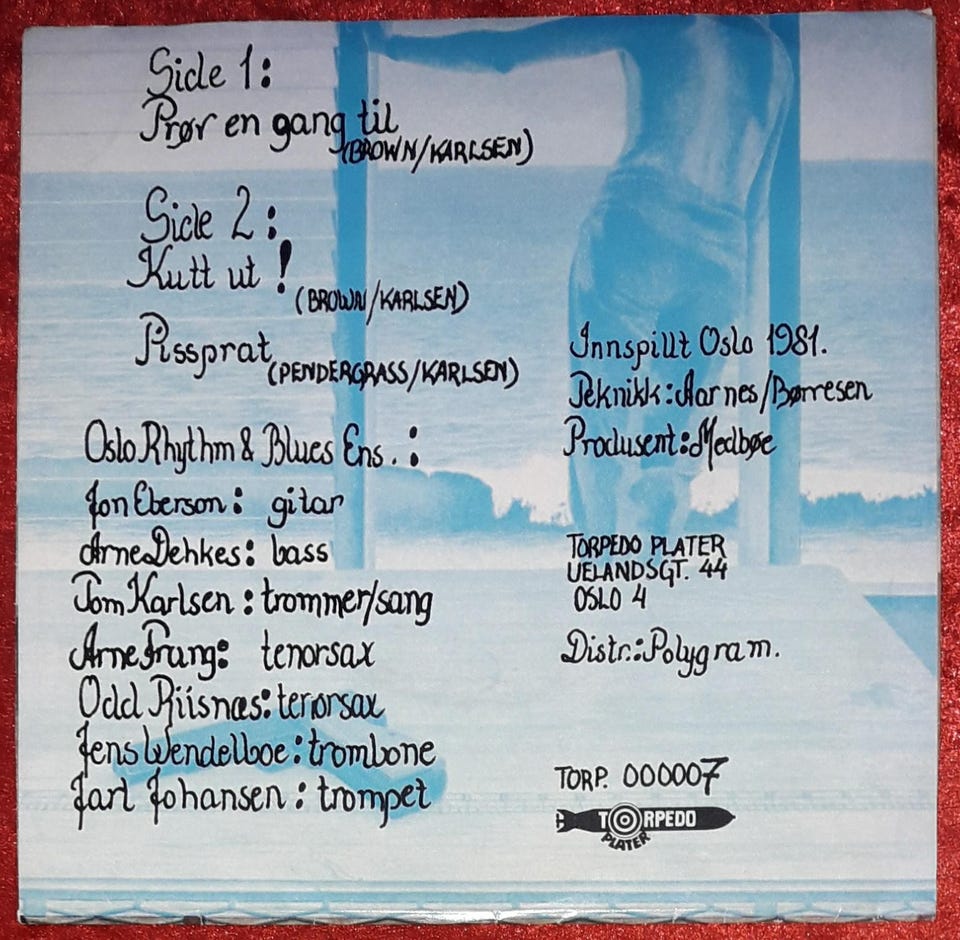 Side 1:
Prør en gang til
(BROWN/KARLSEN)
Side 2:
Kutt ut!
(BROWN/KARLSEN)
Pissprat
(PENDERGRASS/KARLSEN)
Oslo Rhythm & Blues Ens.:
Jon Eberson: gitar
Arne Dehkes: bass
Tom Karlsen: trommer/sang
Arne Frang: tenorsax
Odd Riisnæs: tenorsax
Jens Wendelboe: trombone
Jarl Johansen: trompet
Innspillt Oslo 1981.
Teknikk: Aarnes/Børresen
Produsent: Medbøe
TORPEDO PLATER
UELANDSGT. 44
OSLO 4
Distr.: Polygram.
TORP. 000007
TORPEDO
PLATER